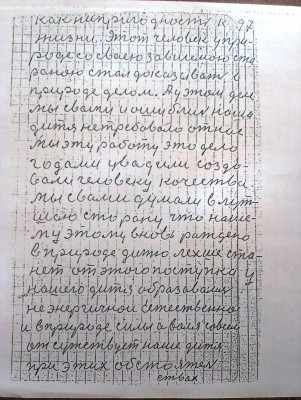 как нипригодность к 97
жизни. Этот человек у при
роде со своею завшемою ста
раною стал доказывать в
природе делом. А у этом деле
мы сваими ошибких наша
дитя нетребовало от нас
мы эту работу это дело
годами увадили созда-
вали человеку качества
мы сваими думали в луч-
шею сторану что наше-
му этому вновь раждено
в природе дитю легше ста-
нет от этого поступка у
нашего дитя образавалися
не энергичной естественно
и в природе силы а воля совсем
отсутствует наше дитя
при этих обстоятел
ствах